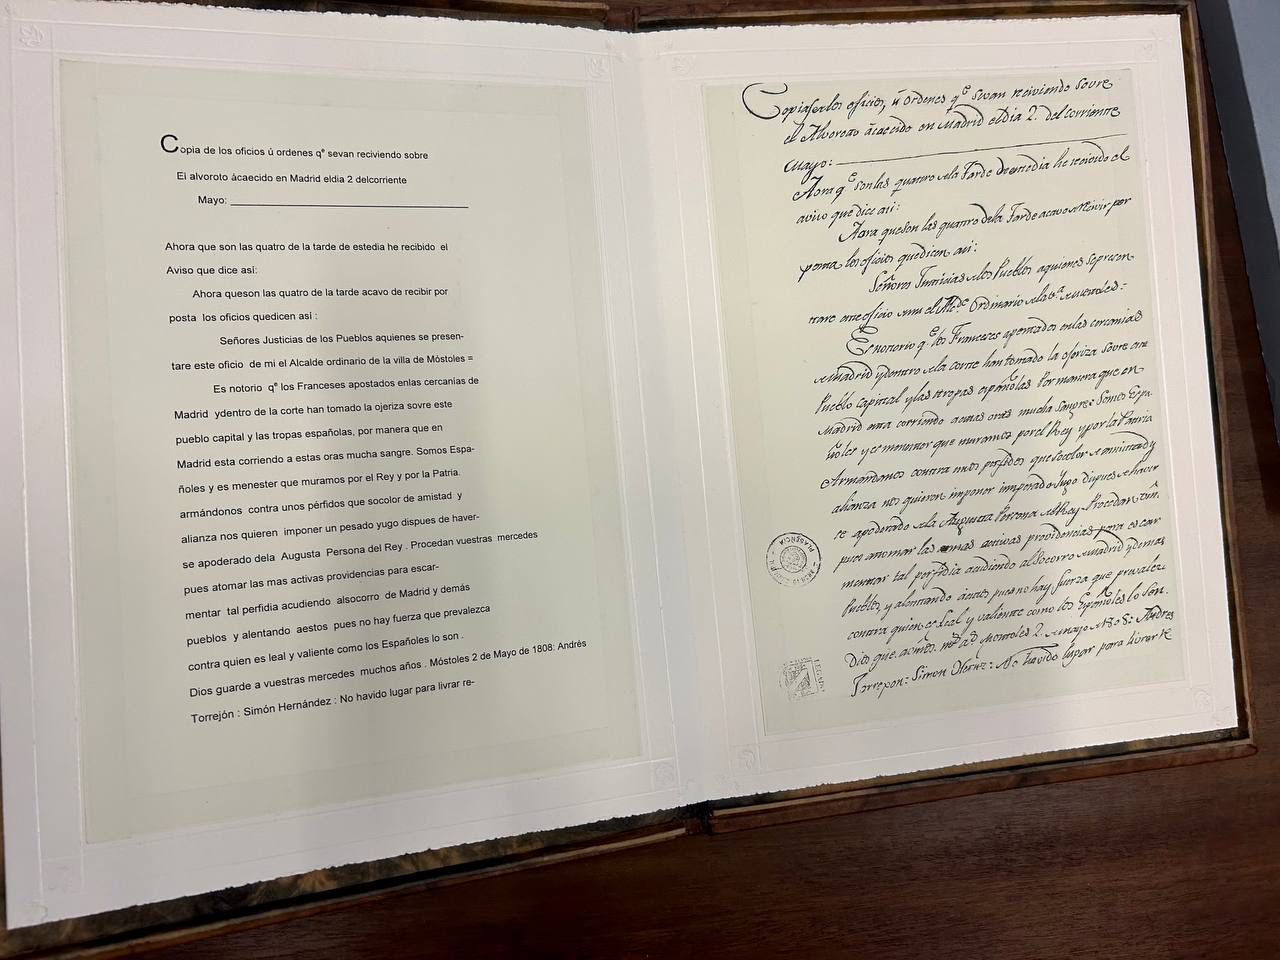 Copia de los oficios ú ordenes qᵉ sevan reciviendo sobre
El alvoroto àcaecido en Madrid eldia 2 delcorriente
Mayo:
Ahora que son las quatro de la tarde de estedia he recibido el
Aviso que dice así:
Ahora queson las quatro de la tarde acavo de recibir por
posta los oficios quedicen así :
Señores Justicias de los Pueblos aquienes se presen-
tare este oficio de mi el Alcalde ordinario de la villa de Móstoles =
Es notorio qᵉ los Franceses apostados enlas cercanías de
Madrid ydentro de la corte han tomado la ojeriza sovre este
pueblo capital y las tropas españolas, por manera que en
Madrid esta corriendo a estas oras mucha sangre. Somos Espa-
ñoles y es menester que muramos por el Rey y por la Patria.
armándonos contra unos pérfidos que socolor de amistad y
alianza nos quieren imponer un pesado yugo dispues de haver-
se apoderado dela Augusta Persona del Rey . Procedan vuestras mercedes
pues atomar las mas activas providencias para escar-
mentar tal perfidia acudiendo alsocorro de Madrid y demás
pueblos y alentando aestos pues no hay fuerza que prevalezca
contra quien es leal y valiente como los Españoles lo son .
Dios guarde a vuestras mercedes muchos años . Móstoles 2 de Mayo de 1808: Andrés
Torrejón : Simón Hernández : No havido lugar para livrar re-
Copia de los oficios, ú ordenes qᵉ sevan reciviendo sovre
el Alvoroto àcaecido en Madrid eldia 2. del corriente
Mayo:
Aora qᵉ son las quatro dela Tarde deestedia he recivido el
aviso que dice asi:
Aora queson las quatro dela Tarde acavo de recivir por
posta los oficios quedicen asi:
Señores Justicias delos Pueblos aquienes sepresen
tare este oficio demi el Alᵈᵉ Ordinario dela vᵃ de Mostoles=
Es notorio qᵉ los Franceses apostados enlas cercanias
de Madrid ydentro dela corte han tomado la ojeriza sovre este
Pueblo capital ylas tropas españolas Por manera que en
Madrid esta corriendo aestas oras mucha sangre: Somos Espa
ñoles y es menester que muramos por el Rey y por la Patria
Armandonos contra unos perfidos que socolor de amistad y
alianza nos quieren imponer un pesado Yugo dispues de haver
se apoderado dela Augusta Persona del Rey. Procedan
pues atomar las mas activas providencias para escar
mentar tal perfidia acudiendo al Socorro de Madrid y demas
Pueblos, y alentando aestos pues no hay fuerza que prevalezca
contra quien es leal y valiente como los Españoles lo son.
Dios gᵉ. a Mostoles 2. de Mayo de 1808: Andres
Torrejon: Simon Hernz: No havido lugar para livrar re
PLASENCIA
LEGADO